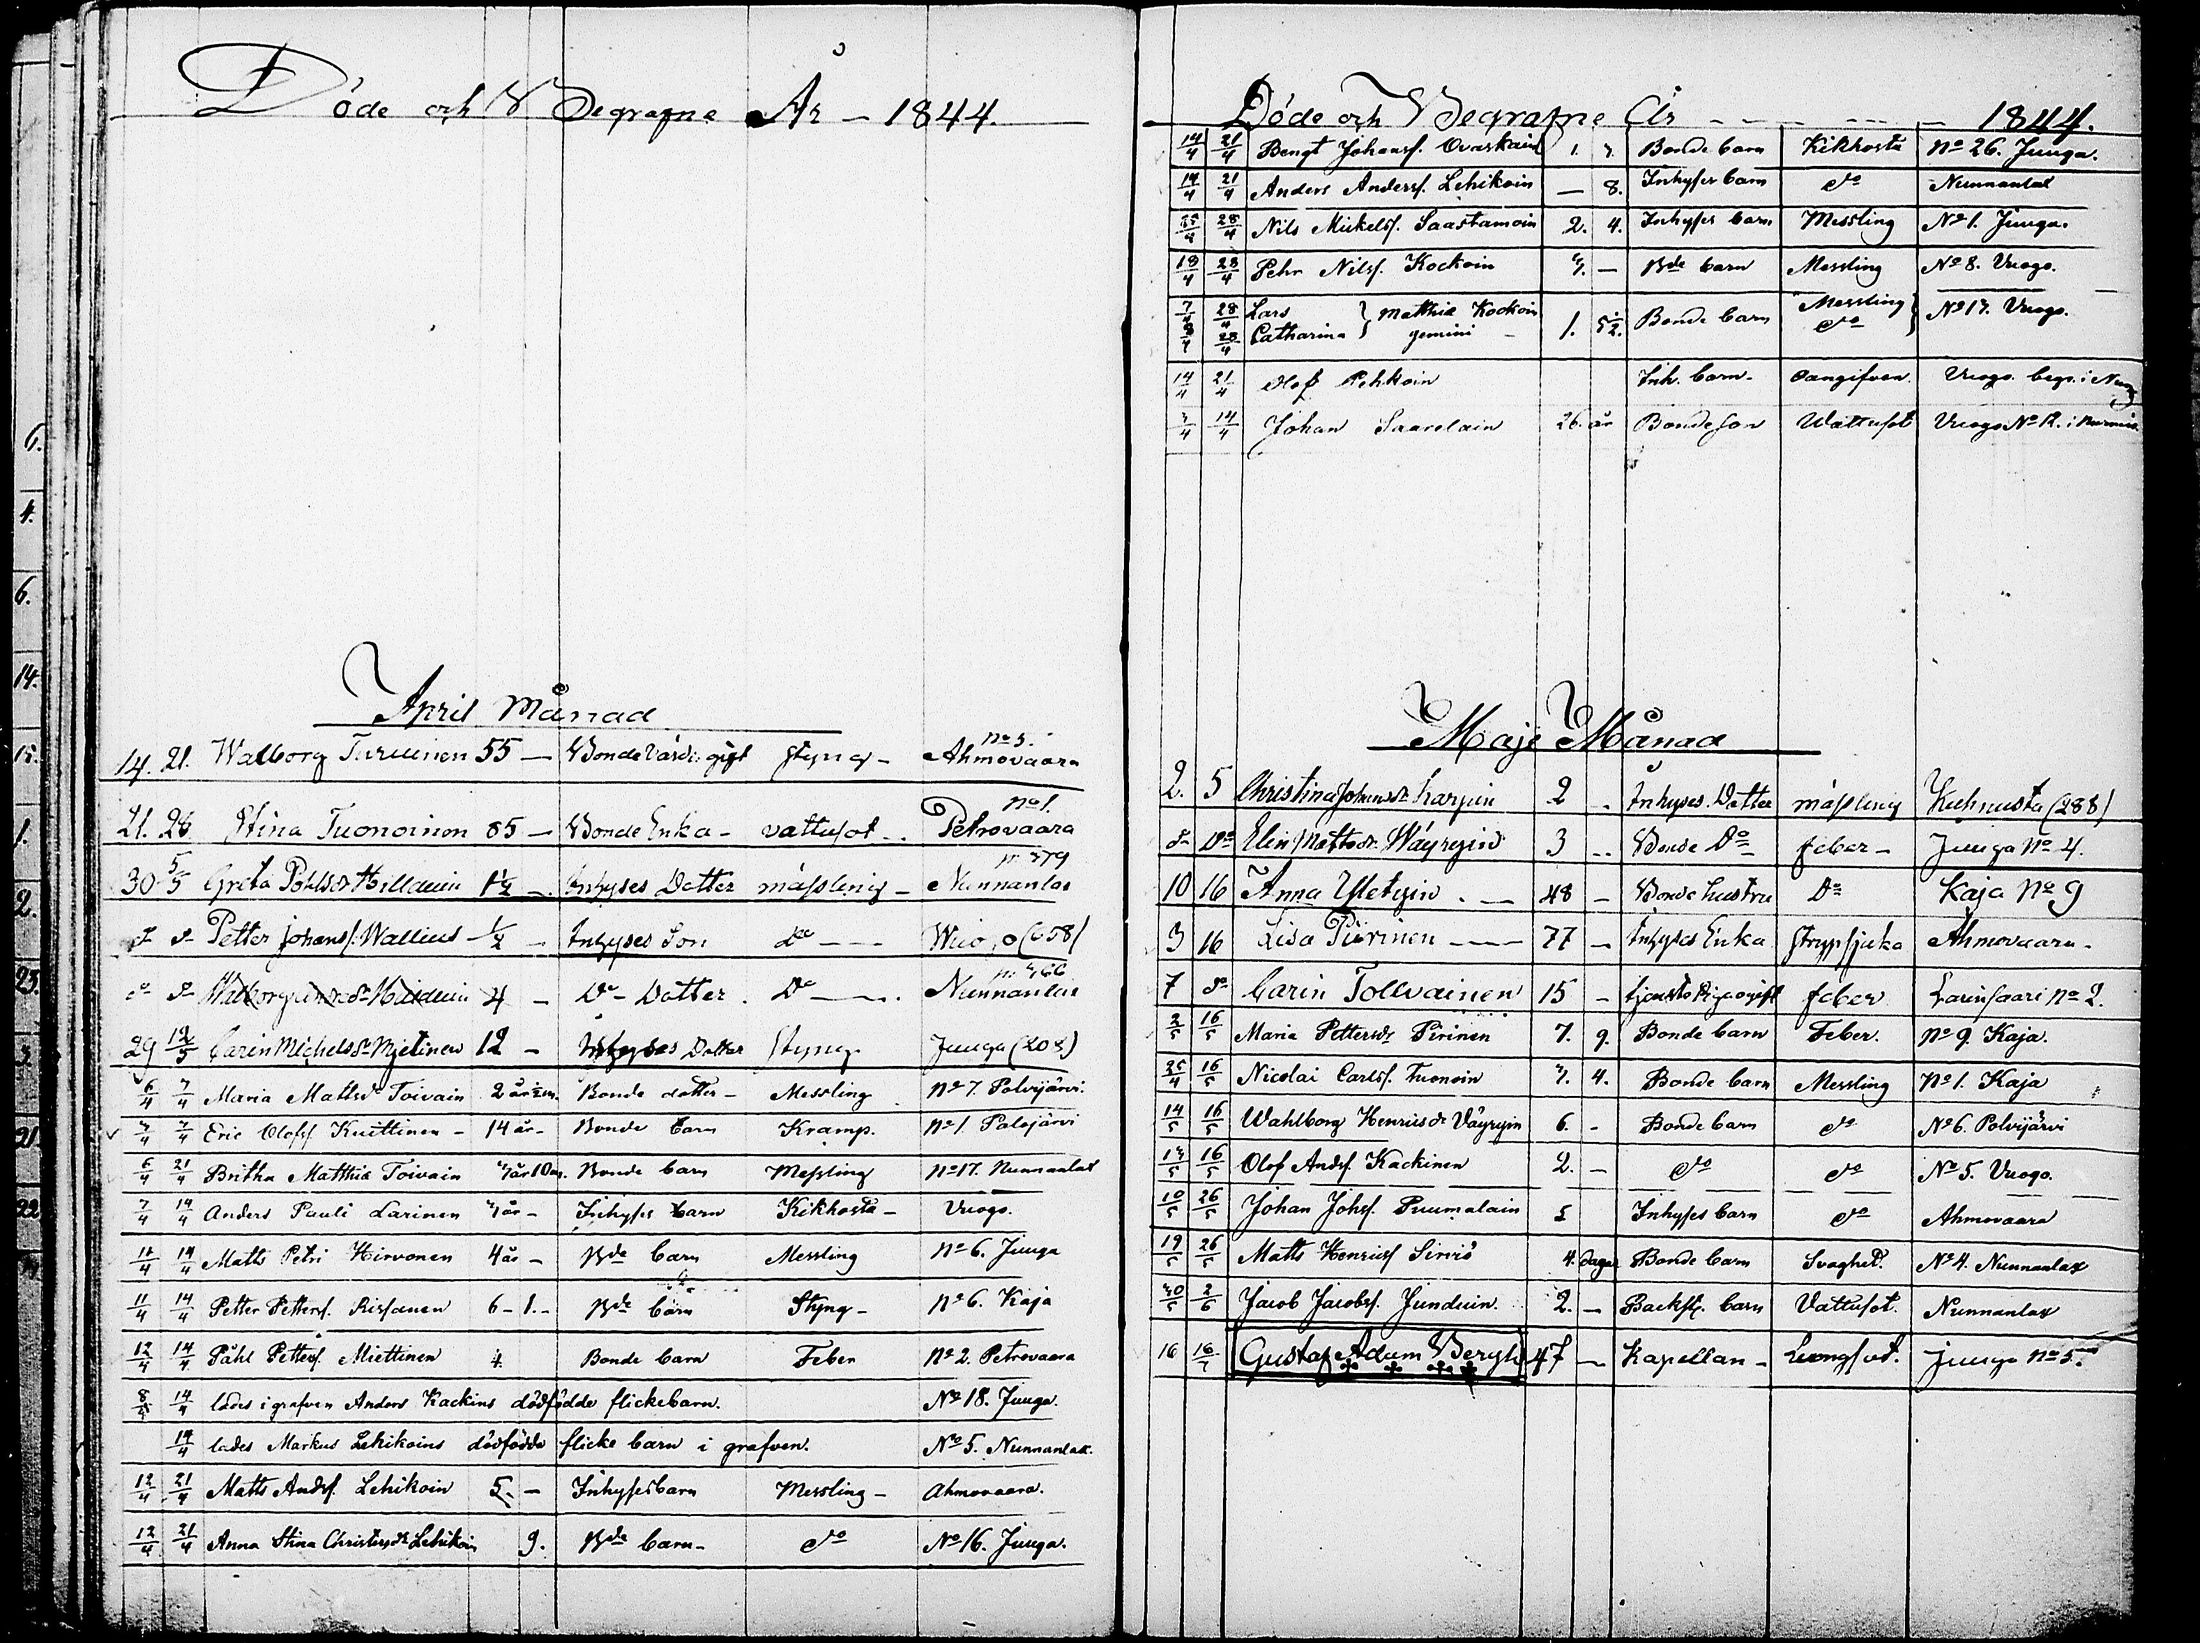 Döde och Begrafne År - 1844.
April Månad
14. 21. Walborg Turuinen 55 — Bonde Värd: gift styng - No 5. Ahmovaara
21. 28. Stina Tuonoinen 85 — Bonde Enka - vattusot - No 1. Petrovaara
30 5/5 Greta Påhlsdr Hilduin 1 1/2 — Inhyses Dotter mässling - n. 379 Nunnanlax
do do Petter Johanss: Wallius 1/2 — Inhyses Son do — Wuogo (658)
do do Walborg Hiiduin 4 - Do Dotter. Do —. n. 466 Nunnanlax
29 12/5 Carin Michelsdr Mjetinen 12 - Inhyses Dotter Styng. Juuga (208)
6/4 7/4 Maria Mattsdr Toivain 2 år 1/2 m. Bonde dotter - Messling No 7. Polvijärvi.
7/4 7/4 Eric Olofsf. Kuittinen - 14 år - Bonde Barn Kramp. No 1. Polojärvi
6/4 21/4 Britha Matthiæ Toivain 7 år 10 m. Bonde barn Messling No 17. Nunnanlax
7/4 14/4 Anders Pauli Larinen 7 år - Inhyses barn Kikhosta - Vuogo.
11/4 14/4 Matts Petri Hirvonen 4 år - Bde barn Messling No 6. Juuga
11/4 14/4 Petter Pettersf. Rissanen 6 - 1. - Bde barn Styng - No 6. Kaja
12/4 14/4 Påhl Pettersf. Miettinen 4 Bonde barn Feber No 2. Petrovaara
8/4 14/4 lades i grafven Anders Kackins dödfödde flickebarn. No 18. Juuga.
14/4 lades Markus Lehikoins dödfödda flicke barn i grafven. No 5. Nunnanlax.
12/4 21/4 Matts Andsf. Lehikoin 5. - Inhysesbarn Messling - Ahmovaara.
12/4 21/4 Anna Stina Christersdr Lehikoin 9. Bde barn - do No 16. Juuga.
Döde och Begrafne År - - - 1844.
14/4 21/4 Bengt Johansf. Ovaskain 1. 7. Bonde barn Kikhosta No 26. Juuga.
14/4 21/4 Anders Andersf. Lehikoin — 8. Inhyses barn do Nunnanlax
25/4 28/4 Nils Mickelsf. Saastamoin 2. 4. Inhyses barn Messling No 1. Juuga.
18/4 28/4 Pehr Nilsf. Kockoin 7. — Bde barn Messling No 8. Vuogo.
7/4 28/4 Lars } Matthiæ Kockoin 1. 5 1/2. Bonde barn Messling } No 17. Vuogo.
28/4 Catharina } gemini - do
14/4 21/4 Olof Pehkoin Inh. barn - Oangifven. Vuogo. begr. i
7/4 14/4 Johan Saarelain 26. år Bonde son Wattusot Vuogo No 12. i Nurmis
Maje Månad
2. 5 Christina Johansdr Karpin 2 .. Inhyses Dotter mässling Kuhnusta (288)
do Do Elin Mattsdr Wäyrynin 3 .. Bonde Do feber - Juuga No 4.
10 16 Anna Yletyin . — 48 - Bonde hustru Do Kaja No 9
3 16 Lisa Piirinen —— 77 — Inhyses Enka strypsjuka Ahmovaara -
7 do Carin Tollvainen 15 - tjenste Piga ogift feber Larinsaari No 2.
2/5 16/5 Maria Pettersdr Pirinen 7. 9. Bonde barn Feber. No 9. Kaja.
25/4 16/5 Nicolai Carlsf. Tuonoin 7. 4. Bonde barn Messling No 1. Kaja
14/5 16/5 Wahlborg Henricsdr Väyrynin 6. - Bonde barn do No 6. Polvijärvi
13/5 16/5 Olof Andsf. Kackinen 2. - do do No 5. Vuogo.
10/5 26/5 Johan Johsf. Puumalain 5 Inhyses barn do Ahmovaara
19/5 26/5 Matts Henricsf Sirviö 4. dagar Bonde barn Svaghet. No 4. Nunnanlax
30/5 2/6 Jacob Jacobsf. Junduin. 2. - Backst. barn Vattusot. Nunnanlax
16 16/7 Gustaf Adam Bergh 47 — Kapellan - Lungsot. Juuga No 5.